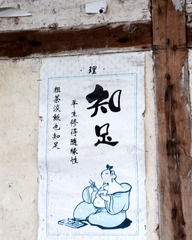 理
知足
半生修得随缘性
粗茶淡飯也知足